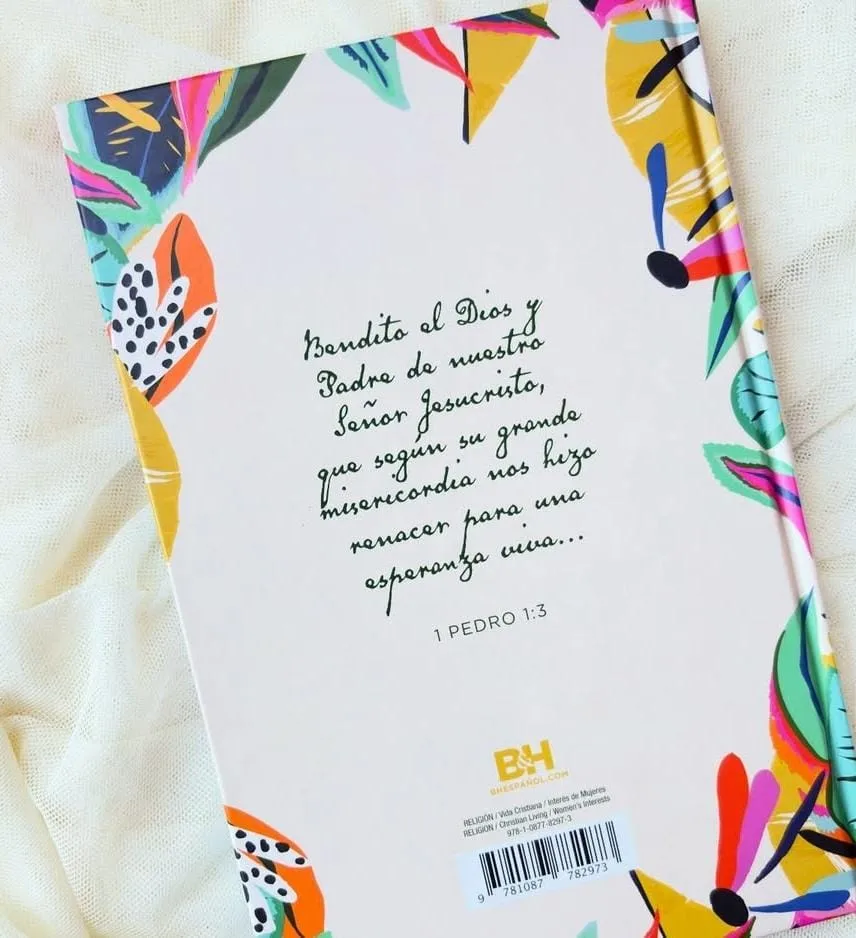 Bendito el Dios y
Padre de nuestro
Señor Jesucristo,
que según su grande
misericordia nos hizo
renacer para una
esperanza viva...
1 PEDRO 1:3
B&H
BHESPAÑOL.COM
RELIGIÓN / Vida Cristiana / Interés de Mujeres
RELIGION / Christian Living / Women's Interests
978-1-0877-8297-3
9 781087 782973